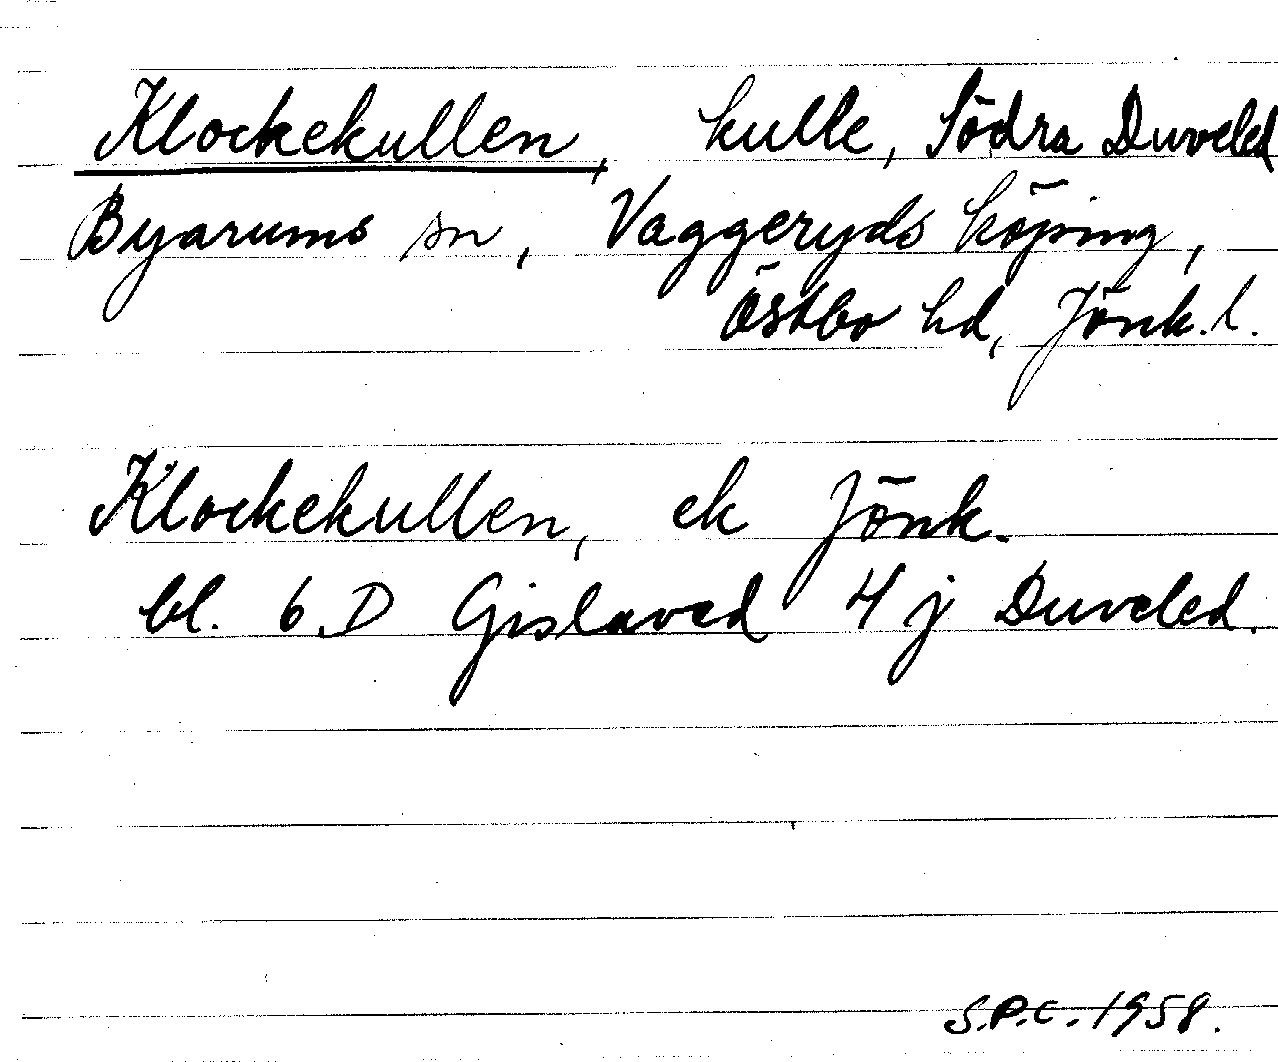 Klockekullen, kulle, Södra Duveled
Byarums sn, Vaggeryds köping,
Östbo hd, Jönk. l.
Klockekullen, ek Jönk.
bl. 6.D Gislaved 4 j Duveled.
S.P.C. 1958.